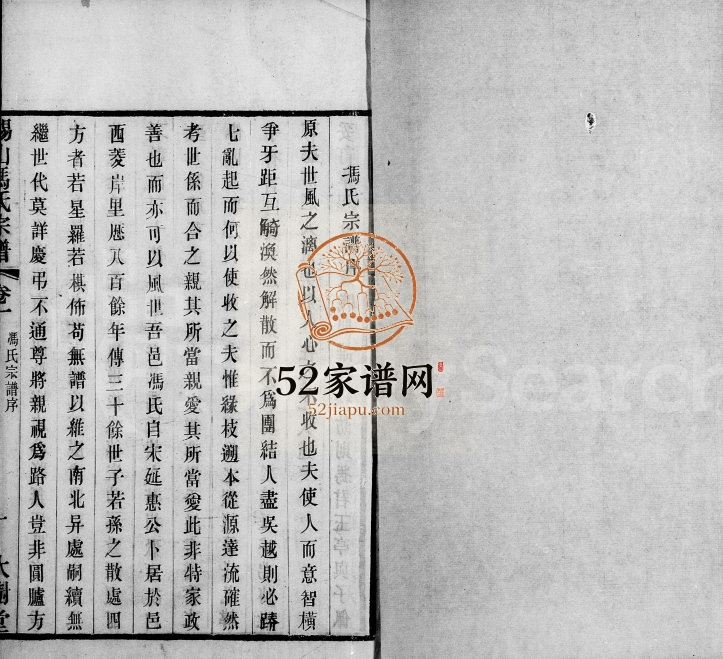 馮氏宗譜序
原夫世風之漓也以人心之不收也夫使人而意智橫
爭牙距互觭渙然解散而不為團結人盡吳越則必踌
七亂起而何以使收之夫惟緣枝遡本從源達流確然
考世係而合之親其所當親愛其所當愛此非特家政
善也而亦可以風世吾邑馮氏自宋延惠公卜居於邑
西菱岸里歷八百餘年傳三十餘世子若孫之散處四
方者若星羅若棋佈苟無譜以維之南北异處嗣續無
繼世代莫詳慶弔不通尊將親視為路人豈非圓臚方
錫山馮氏宗譜 卷一 馮氏宗譜序 一 大樹堂
52家谱网
52jiapu.com